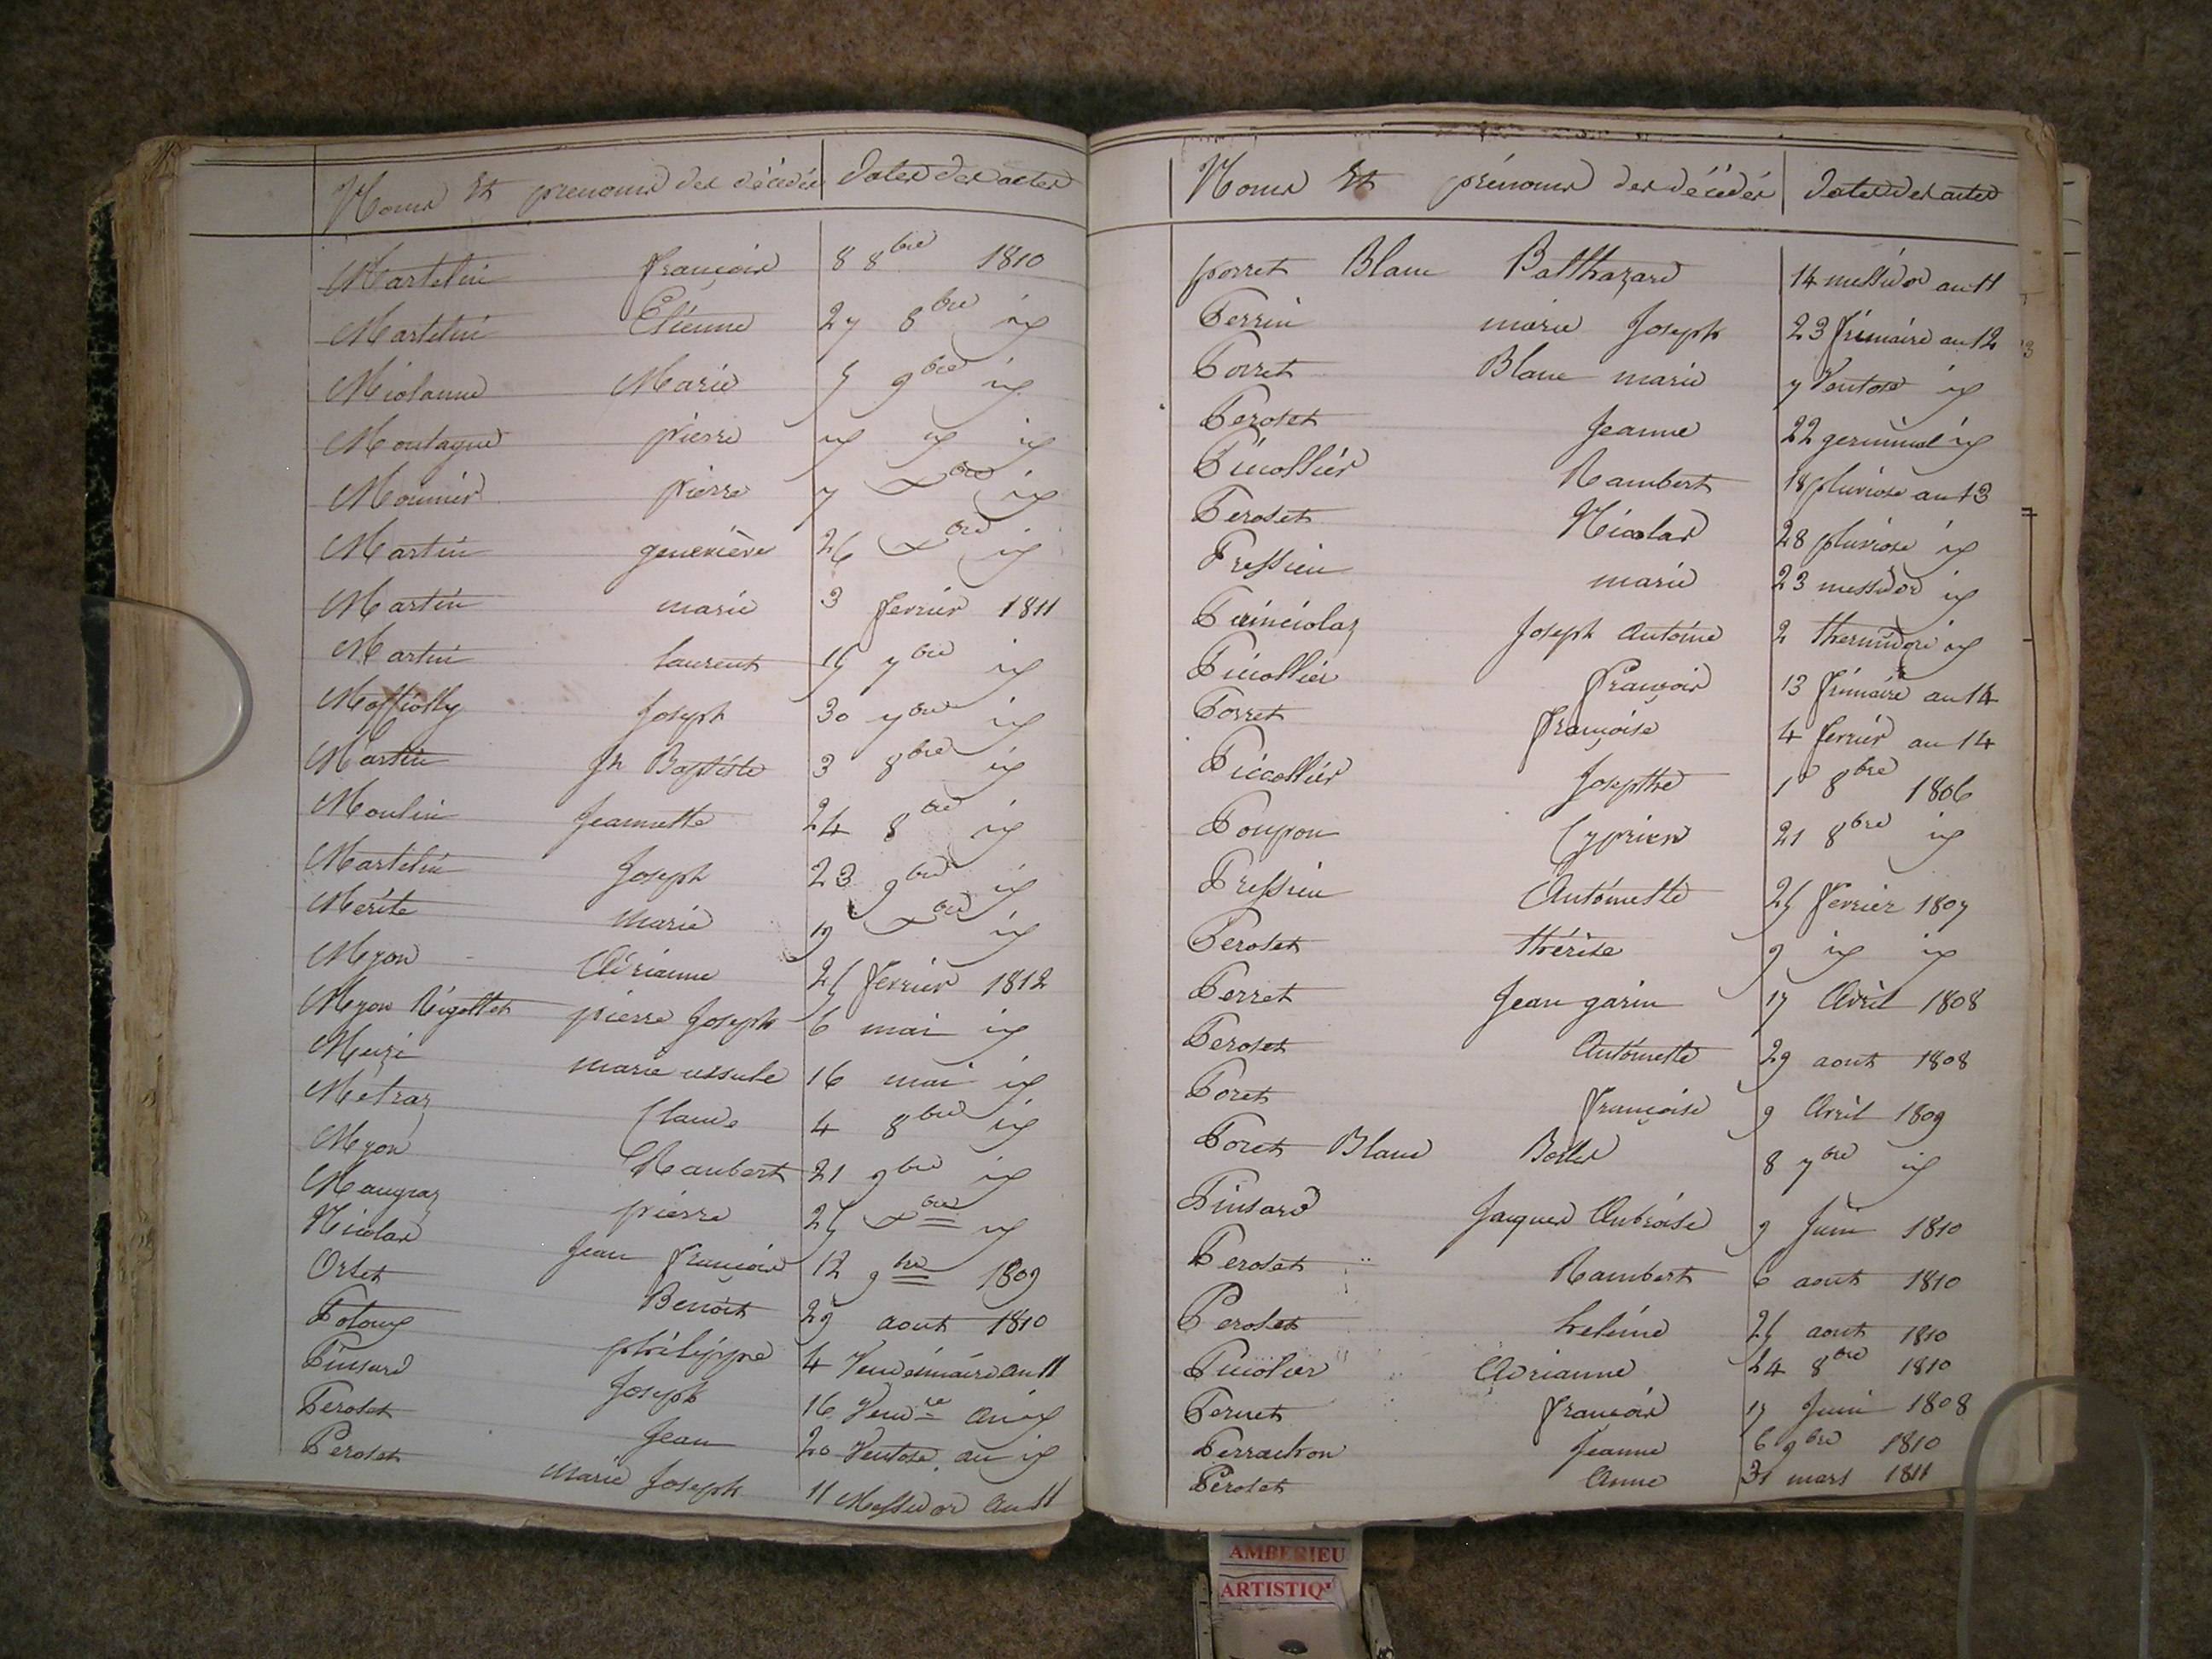 Noms et prenoms des décédés Dates des actes
Martelin françois 8 8bre 1810
Martelin Etienne 27 8bre id
Miolanne Marie 5 9bre id
Montagne pierre id id id
Mounier pierre 7 Xbre id
Martin geneviève 26 Xbre id
Martin marie 3 fevrier 1811
Martin laurent 15 7bre id
Maffiolly Joseph 30 7bre id
Martin Jn Baptiste 3 8bre id
Moulin Jeannette 24 8bre id
Martelin Joseph 23 9bre id
Merite Marie 19 Xbre id
Myon Adrianne 25 fevrier 1812
Myon Rigollet pierre Joseph 6 mai id
Meizi marie ursule 16 mai id
Métraz Claude 4 8bre id
Myon Rambert 21 9bre id
Maugraz pierre 25 Xbre id
Nicolas Jean françois 12 9bre 1809
Orset Benoit 29 aout 1810
philippe 4 Vendémiaire an 11
Pinsard Joseph 16 Vendre an id
Peroset Jean 20 Ventose an id
Peroset Marie Joseph 11 Messidor an 11
Noms et prénoms des décédés Dates des actes
porret Blanc Balthazard 14 messidor an 11
Perrin marie Joseph 23 frimaire an 12
Porret Blanc marie 7 Ventose id
Peroset Jeanne 22 germinal id
Picollier Rambert 18 pluviose an 13
Peroset Nicolas 28 pluviose id
Pressieu marie 23 messidor id
Joseph Antoine 2 thermidore id
Picollier françois 13 frimaire an 14
Porret françoise 4 fevrier an 14
Piccollier Josepthe 1r 8bre 1806
Poupon Cyprien 21 8bre id
Pressieu Antoinette 25 fevrier 1807
Peroset thérèse 9 id id
Perret Jean garin 17 Avril 1808
Peroset Antoinette 29 aout 1808
Poret françoise 9 Avril 1809
Poret Blanc 8 7bre id
Pinsard Jacques Anbroise 9 Juin 1810
Peroset Rambert 6 aout 1810
Peroset heleine 25 aout 1810
Picolier Adrianne 24 8bre 1810
Pernet françois 15 Juin 1808
Perrachon Jeanne 6 9bre 1810
Peroset Anne 31 mars 1811
AMBERIEU
ARTISTIQ